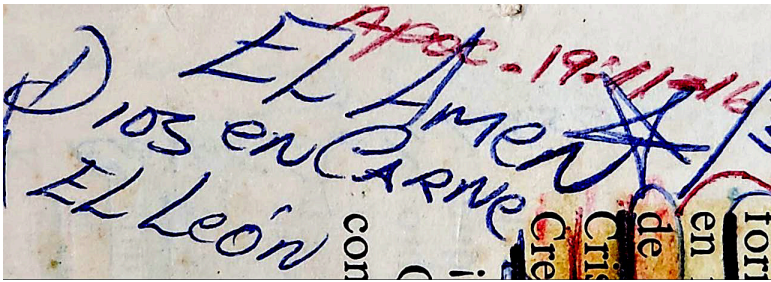 Apoc-19:11-16
El Amen
Dios en Carne
El León
forr
en
de
Cris
Cre
con